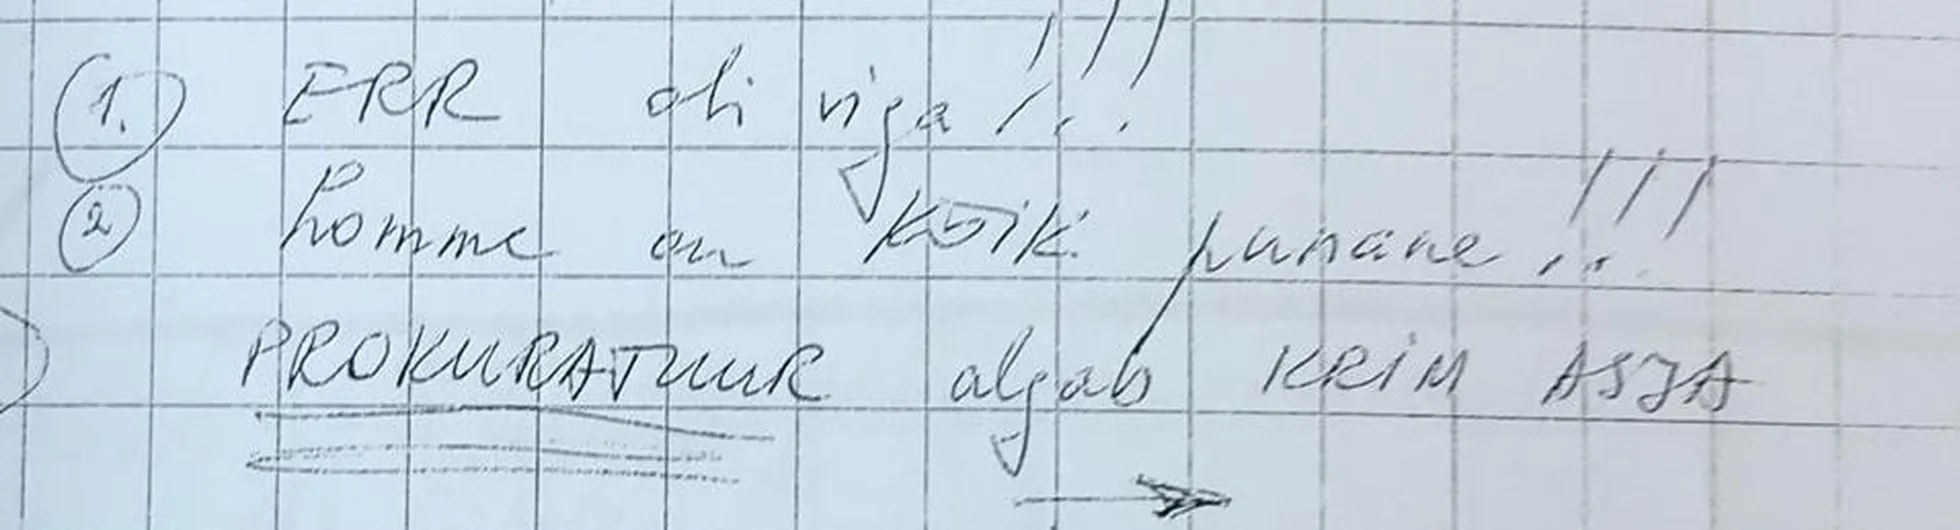 1. ERR oli viga!!!
2 homme on KÕIK punane!!!
PROKURATUUR algab KRIM ASJA